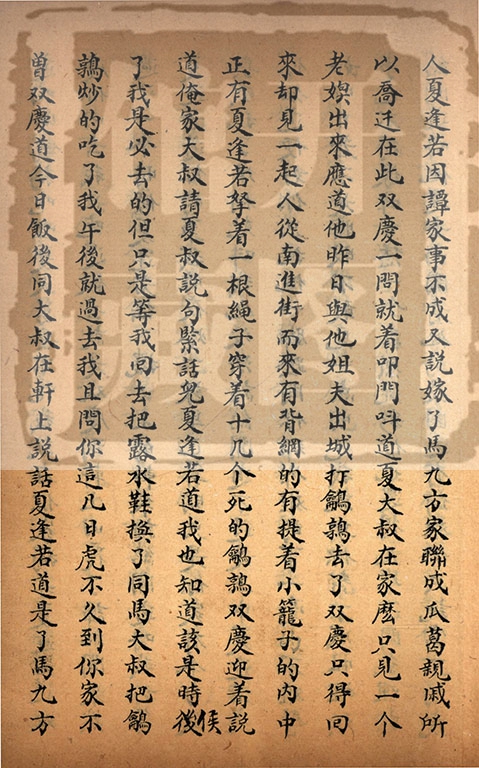 人夏逢若因譚家事不成又説嫁了馬九方家聯成瓜葛親戚所
以喬迁在此双慶一問就着叩門叫道夏大叔在家麽只見一个
老娱出來應道他昨日與他姐夫出城打鵪鶉去了双慶只得回
來却見一起人從南進街而來有背網的有提着小籠子的内中
正有夏逢若拏着一根繩子穿着十几个死的鵪鶉双慶迎着説
道俺家大叔請夏叔説句緊話児夏逢若道我也知道該是時候
了我是必去的但只是等我回去把露水鞋換了同馬大叔把鵪
鶉炒的吃了我午後就過去我且問你這几日虎不久到你家不
曾双慶道今日飯後同大叔在軒上説話夏逢若道是了馬九方